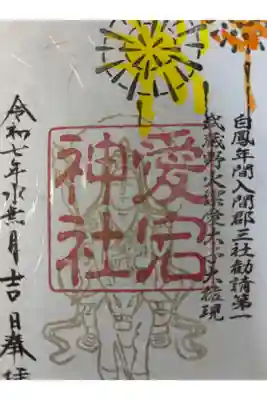 白鳳年間入間郡三社勧請第一
武蔵野火宗愛太子大権現
愛宕神社
令和七年水無月吉日奉拝